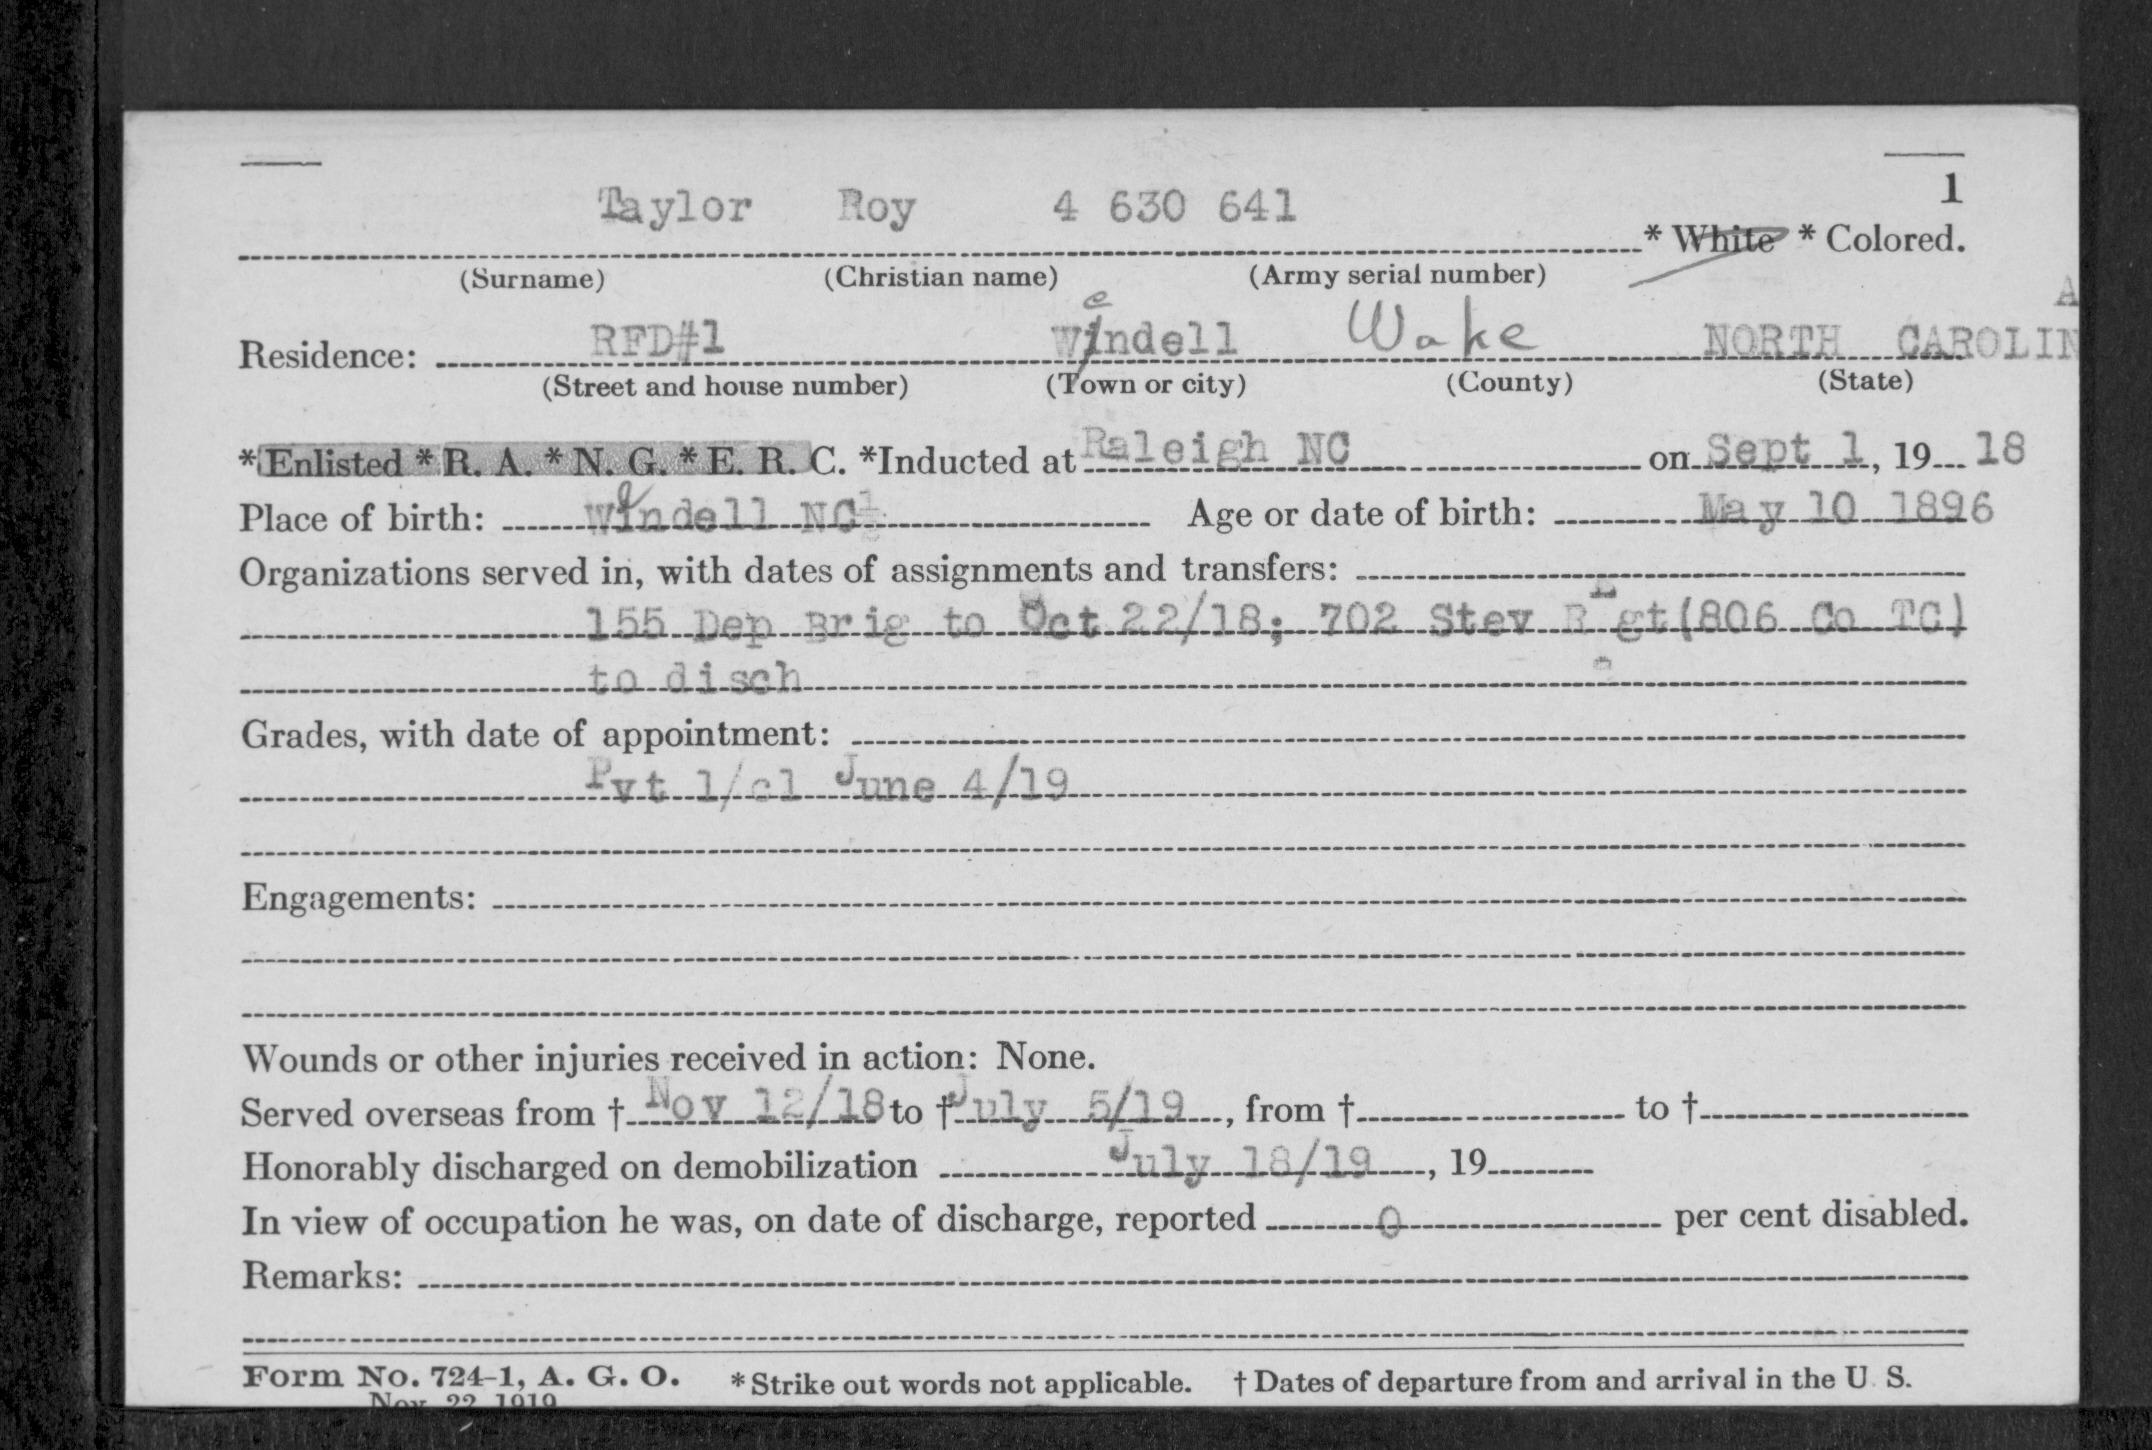 1
Taylor Roy 4 630 641 * White * Colored.
(Surname) (Christian name) (Army serial number)
Residence: RFD#1 Wendell Wake NORTH CAROLINA
(Street and house number) (Town or city) (County) (State)
*Enlisted *R. A. *N. G. *E. R. C. *Inducted at Raleigh NC on Sept 1, 19 18
Place of birth: Wendell NC Age or date of birth: May 10 1896
Organizations served in, with dates of assignments and transfers:
155 Dep Brig to Oct 22/18; 702 Stev R gt(806 Co TC)
to disch
Grades, with date of appointment:
Pvt 1/cl June 4/19
Engagements:
Wounds or other injuries received in action: None.
Served overseas from † Nov 12/18 to † July 5/19, from † to †
Honorably discharged on demobilization July 18/19, 19
In view of occupation he was, on date of discharge, reported 0 per cent disabled.
Remarks:
Form No. 724-1, A. G. O. *Strike out words not applicable. † Dates of departure from and arrival in the U. S.
Nov. 22, 1919